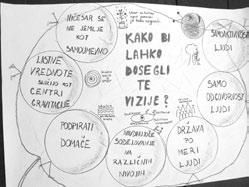 KAKO BI
LAHKO
DOSEGLI
TE
VIZIJE?
NIČESAR SE
NE JEMLJE
KOT
SAMOUMEVNO
LASTNE
VREDNOTE
SLUŽIJO KOT
CENTRI
GRAVITACIJE
PODPIRATI
DOMAČE
SODELOVANJE
NA
RAZLIČNIH
NIVOJIH
DRŽAVA
PO
MERI
LJUDI
SAMO
ODGOVORNOST
LJUDI
LJUDI